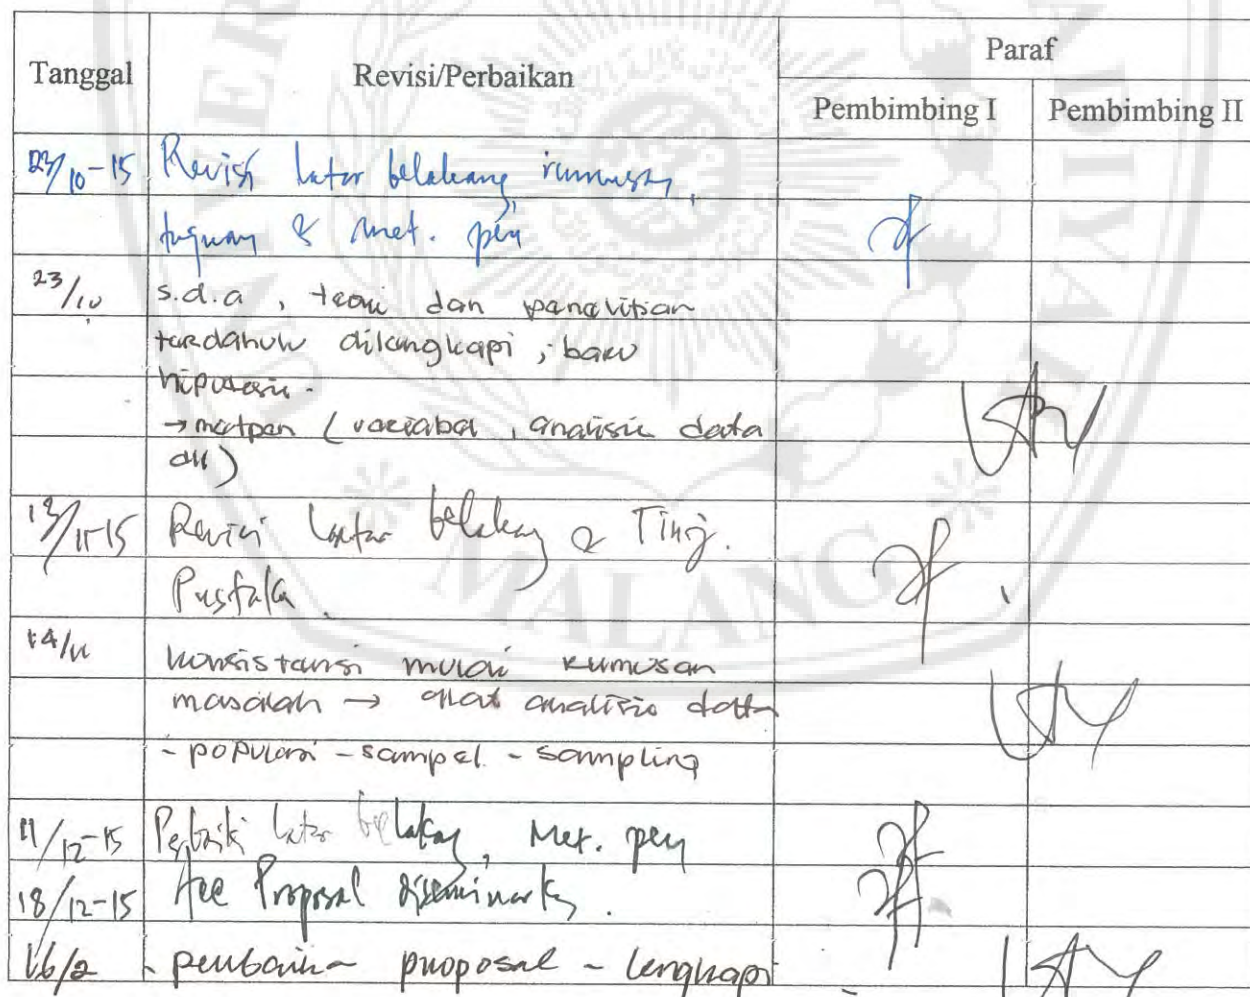 Tanggal Revisi/Perbaikan Paraf
Pembimbing I Pembimbing II
23/10-15 Revisi latar belakang, rumusan,
tujuan & Met. pen
23/10 s.d.a, teori dan penelitian
terdahulu dilengkapi, baru
hipotesis -
→ metpen (variabel, analisis data
dll)
13/11-15 Revisi latar belakang & Tinj.
Pustaka.
14/11 konsistensi mulai rumusan
masalah → alat analisis data
- populasi - sampel - sampling
11/12-15 Perbaiki latar belakang, Met. pen
18/12-15 Acc Proposal diseminarkan.
16/2 - perbaikan proposal - lengkapi
MALANG